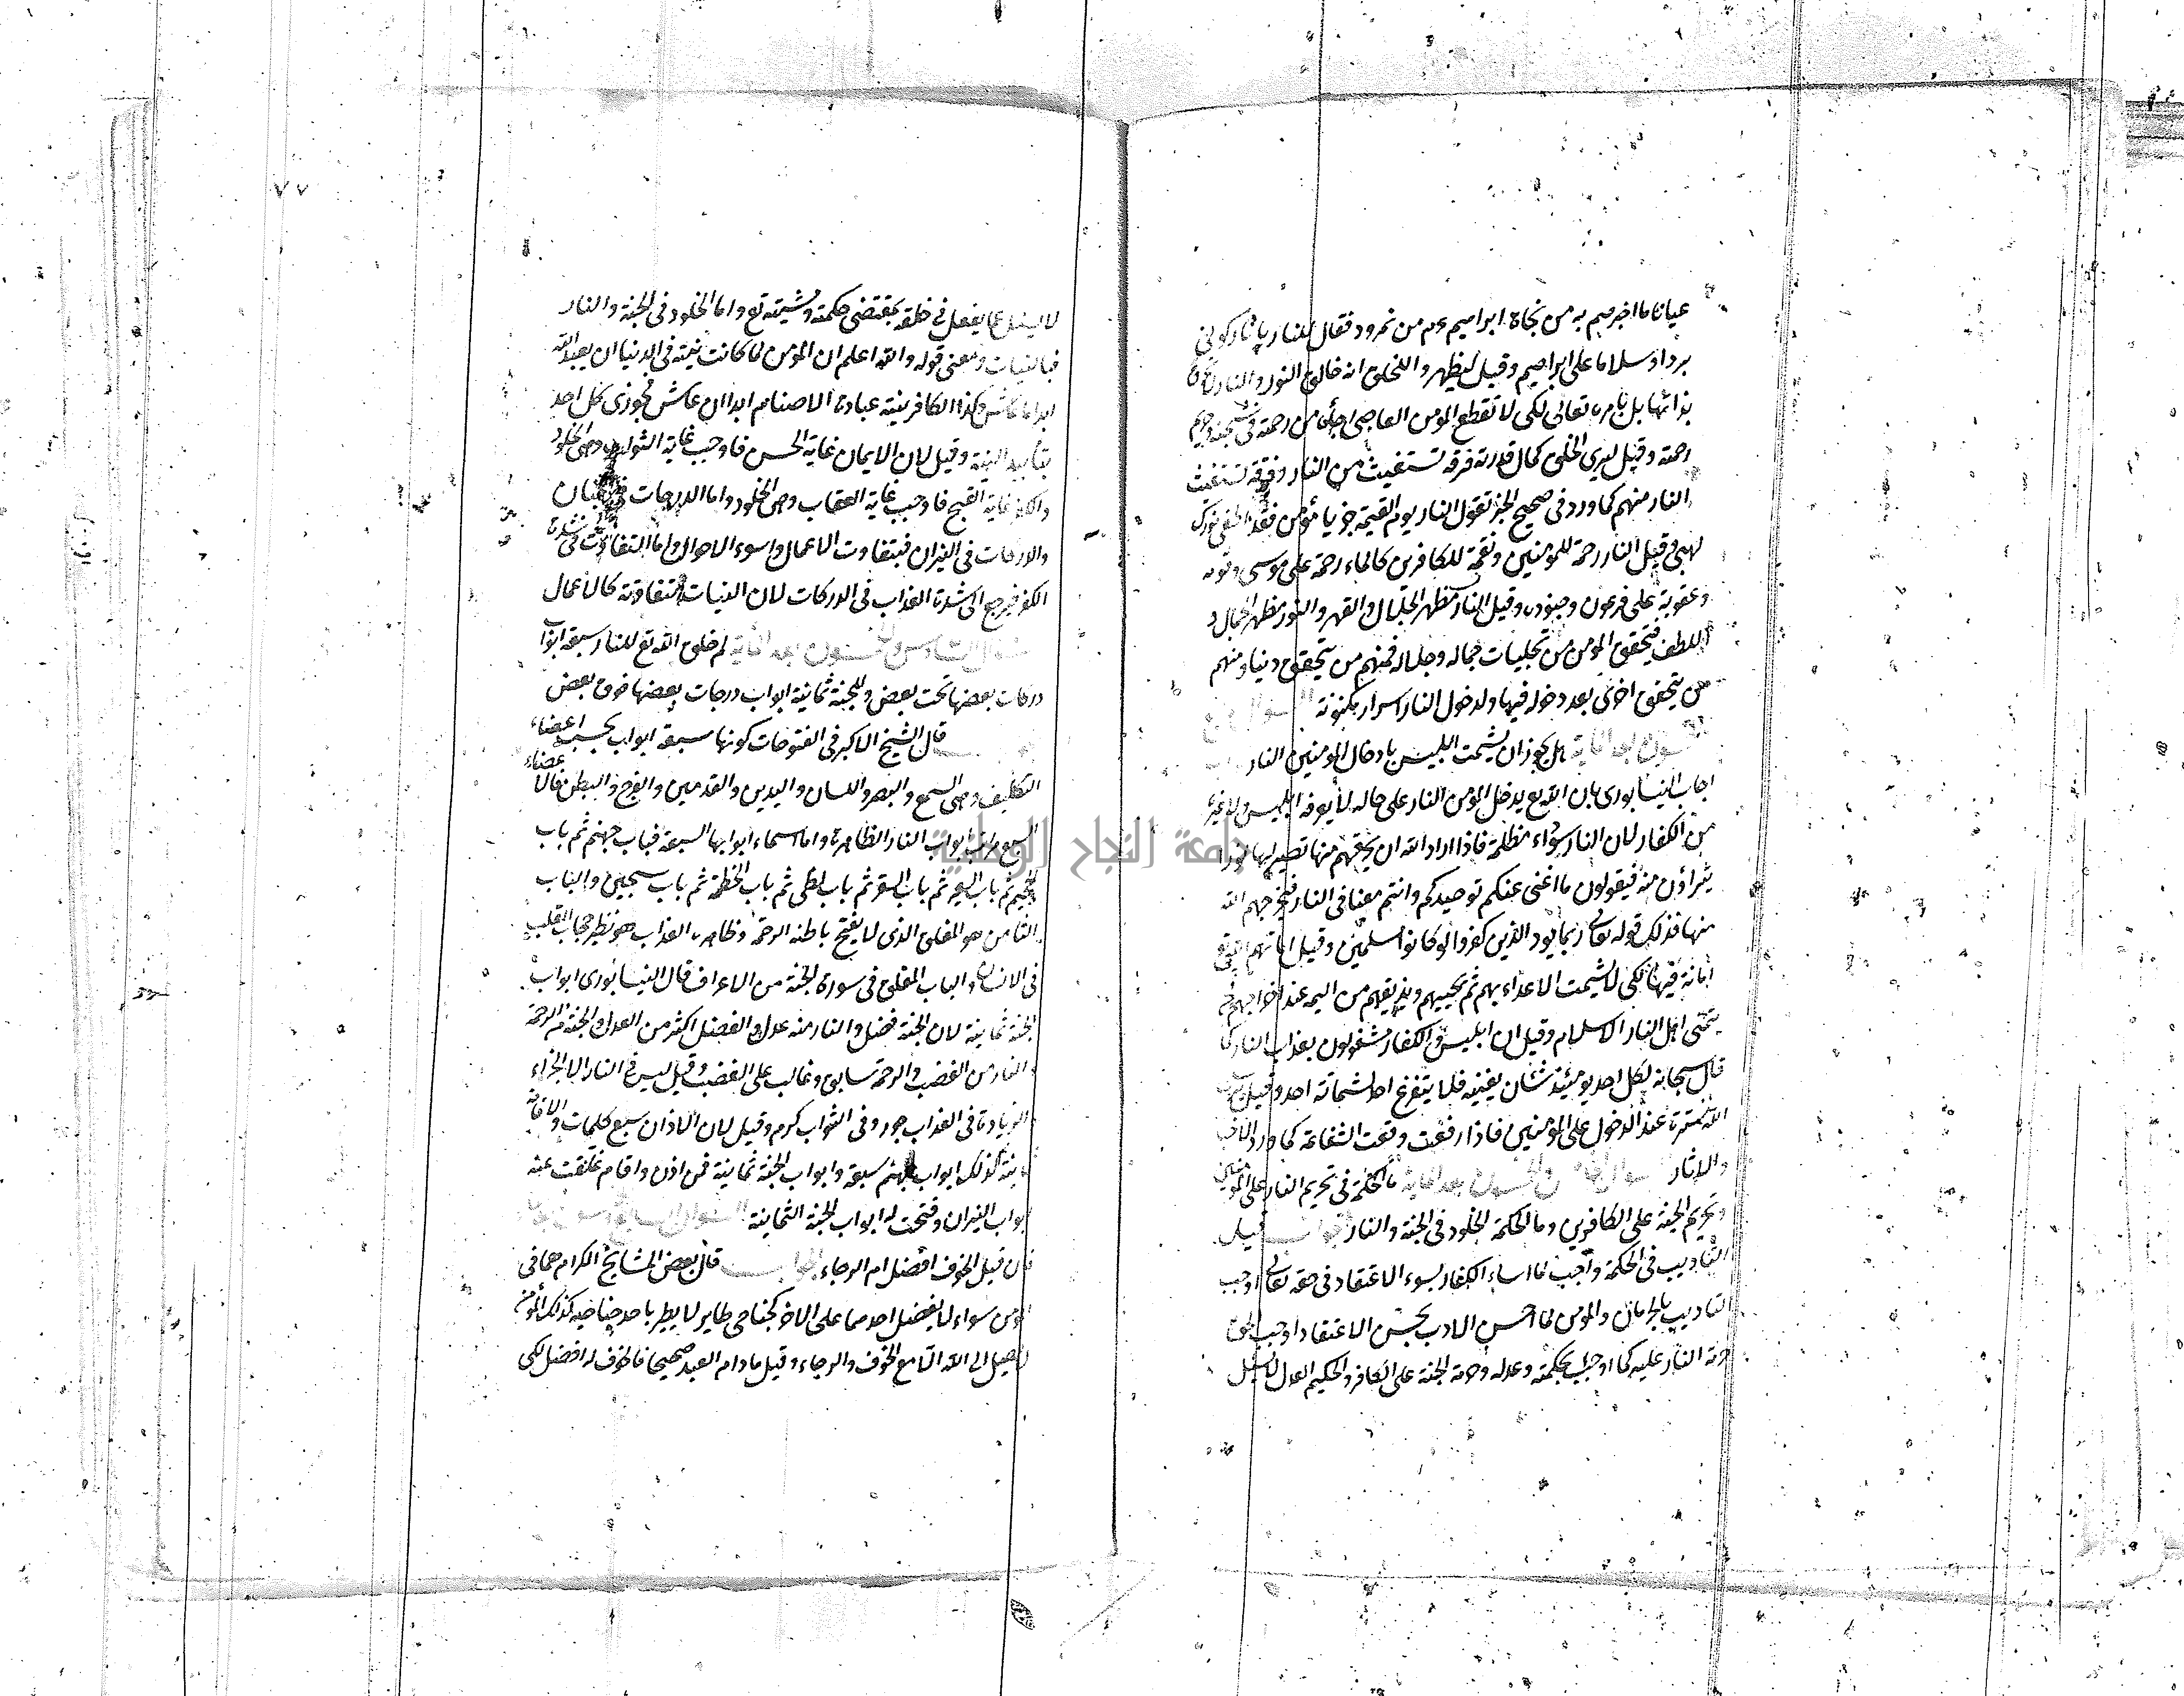 عيانا ما اخبرهم به من نجاة ابراهيم عم من نمرود فقال للنار يا نار كوني
بردا وسلاما على ابراهيم وقيل ليظهر والخلق انه خالق النور والنار
بذاتها بل بامره تعالى لكى لا تقطع المؤمن العاصى من رحمة
رحمته وقيل ليرى الخلق كمال قدرته فرقة تستغيث من النار وفرقة تستغيث
النار منهم كما ورد في صحيح الخبر تقول النار يوم القيمة جز يا مؤمن فقد اطفى نورك
لهبى وقيل النار رحمة للمؤمنين ونقمة للكافرين كالماء رحمة على موسى وقومه
وعقوبة على فرعون وجنوده وقيل النار مظهر الجلال والقهر والنور مظهر الجمال و
اللطف فيتحقق المؤمن من تجليات جماله وجلاله فمنهم من يتحقق دنيا ومنهم
من يتحقق اخرى بعد دخوله فيها ولدخول النار اسرار مكنونة السؤال
بعد المایة هل يجوز ان يشمت ابليس بادخال المؤمنين النار
اجاب النيسابورى بان الله تع يدخل المؤمن النار على حاله لا يعرفه ابليس ولا غيره
من الكفار لان النار سوداء مظلمة فاذا اراد الله ان يخرجهم منها تصير لها نورا
يتراؤن منه فيقولون ما اغنى عنكم توحيدكم وانتم معنا في النار فيخرجهم الله
منها فذلك قوله تعالى ربما يود الذين كفروا لو كانوا مسلمين وقيل اماتهم الله تع
اماتة فيها لكى لا يشمت الاعداء بهم ثم يحييهم ويذيقهم من اليمه عند اخراجهم
يتمنى اهل النار الاسلام وقيل ان ابليس والكفار مشغولون بعذاب النار كما
قال سبحانه لكل احد يومئذ شان يغنيه فلا يتفرغ احد لشماتة احد وقيل
الله عند الدخول على المؤمنين فاذا رفعت وقعت الشفاعة كما ورد
والاثار السؤال الخامس والخمسون بعد المایة ما الحكمة في تحريم النار على المؤمنين
وتحريم الجنة على الكافرين وما الحكمة الخلود في الجنة والنار الجواب قيل
التاديب في الحكمة واجب لما اساء الكفار بسوء الاعتقاد في حقه تعالى اوجب
التاديب بالحرمان والمؤمن لما احسن الادب بحسن الاعتقاد اوجب
حرمة النار عليه كما اوجب بحكمته وعدله وحرمة الجنة على الكافر والحكيم العدل لا يسئل
٧٧
لا يسئل عما يفعل في خلقه بمقتضى حكمته ومشيته تع واما الخلود في الجنة والنار
فبالنيات ومعنى قوله والله اعلم ان المؤمن لما كانت نيته في الدنيا ان يعبد الله
ابدا ما عاش وكذا الكافر نيته عبادة الاصنام ابدا ان عاش فجوزى كل احد
بتأبيد النية وقيل لان الايمان غاية الحسن فاوجب غاية الثواب وهى الخلود
والكفر غاية القبح فاوجب غاية العقاب وهى الخلود واما الدرجات في الجنان
والدركات في النيران فبتفاوت الاعمال واسوء الاحوال واما التفاوت في شدة
الكفر فيرجع الى شدة العذاب في الدركات لان النيات متفاوتة كالاعمال
السؤال السادس والخمسون بعد المایة لم خلق الله تع للنار سبعة ابواب
دركات بعضها تحت بعض وللجنة ثمانية ابواب درجات بعضها فوق بعض
قال الشيخ الاكبر في الفتوحات كونها سبعة ابواب بحسب اعضاء
التكليف وهى السمع والبصر واللسان واليدين والقدمين والفرج والبطن فالاعضاء
السبع مراتب ابواب النار الظاهرة واما اسماء ابوابها السبعة فباب جهنم ثم باب
الجحيم ثم باب السعير ثم باب السقر ثم باب لظى ثم باب الحطمة ثم باب سجين والباب
الثامن هو المغلق الذى لا يفتح باطنه الرحمة وظاهره العذاب هو نظير حجاب القلب
في الانسان والباب المغلق في سورة الجنة من الاعراف قال النيسابورى ابواب
الجنة ثمانية لان الجنة فضل والنار منه عدل والفضل اكثر من العدل والجنة من الرحمة
والنار من الغضب والرحمة سابق وغالب على الغضب وقيل ليس في النار الا الجزاء
والزيادة في العذاب جور وفي الثواب كرم وقيل لان الاذان سبع كلمات والاقامة
ثمانية كذلك ابواب جهنم سبعة وابواب الجنة ثمانية فمن اذن واقام غلقت عنه
ابواب النيران وفتحت له ابواب الجنة الثمانية السؤال السابع والخمسون
فان قيل الخوف افضل ام الرجاء الجواب قال بعض المشايخ الكرام هما في
المؤمن سواء لا يفضل احدهما على الاخر كجناحى طاير لا يطير باحد جناحيه كذلك المؤمن
لا يصل الى الله الا مع الخوف والرجاء وقيل ما دام العبد صحيحا فالخوف له افضل لكى
جامعة النجاح الوطنية